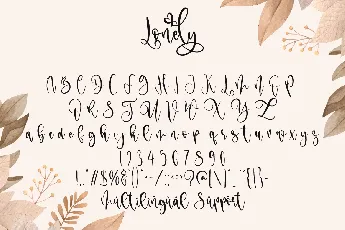 Lonely
A B C D E F G H I J K L M N O P
Q R S T U V W X Y Z
a b c d e f g h i j k l m n o p q r s t u v w x y z
1 2 3 4 5 6 7 8 9 0
Multilingual Support